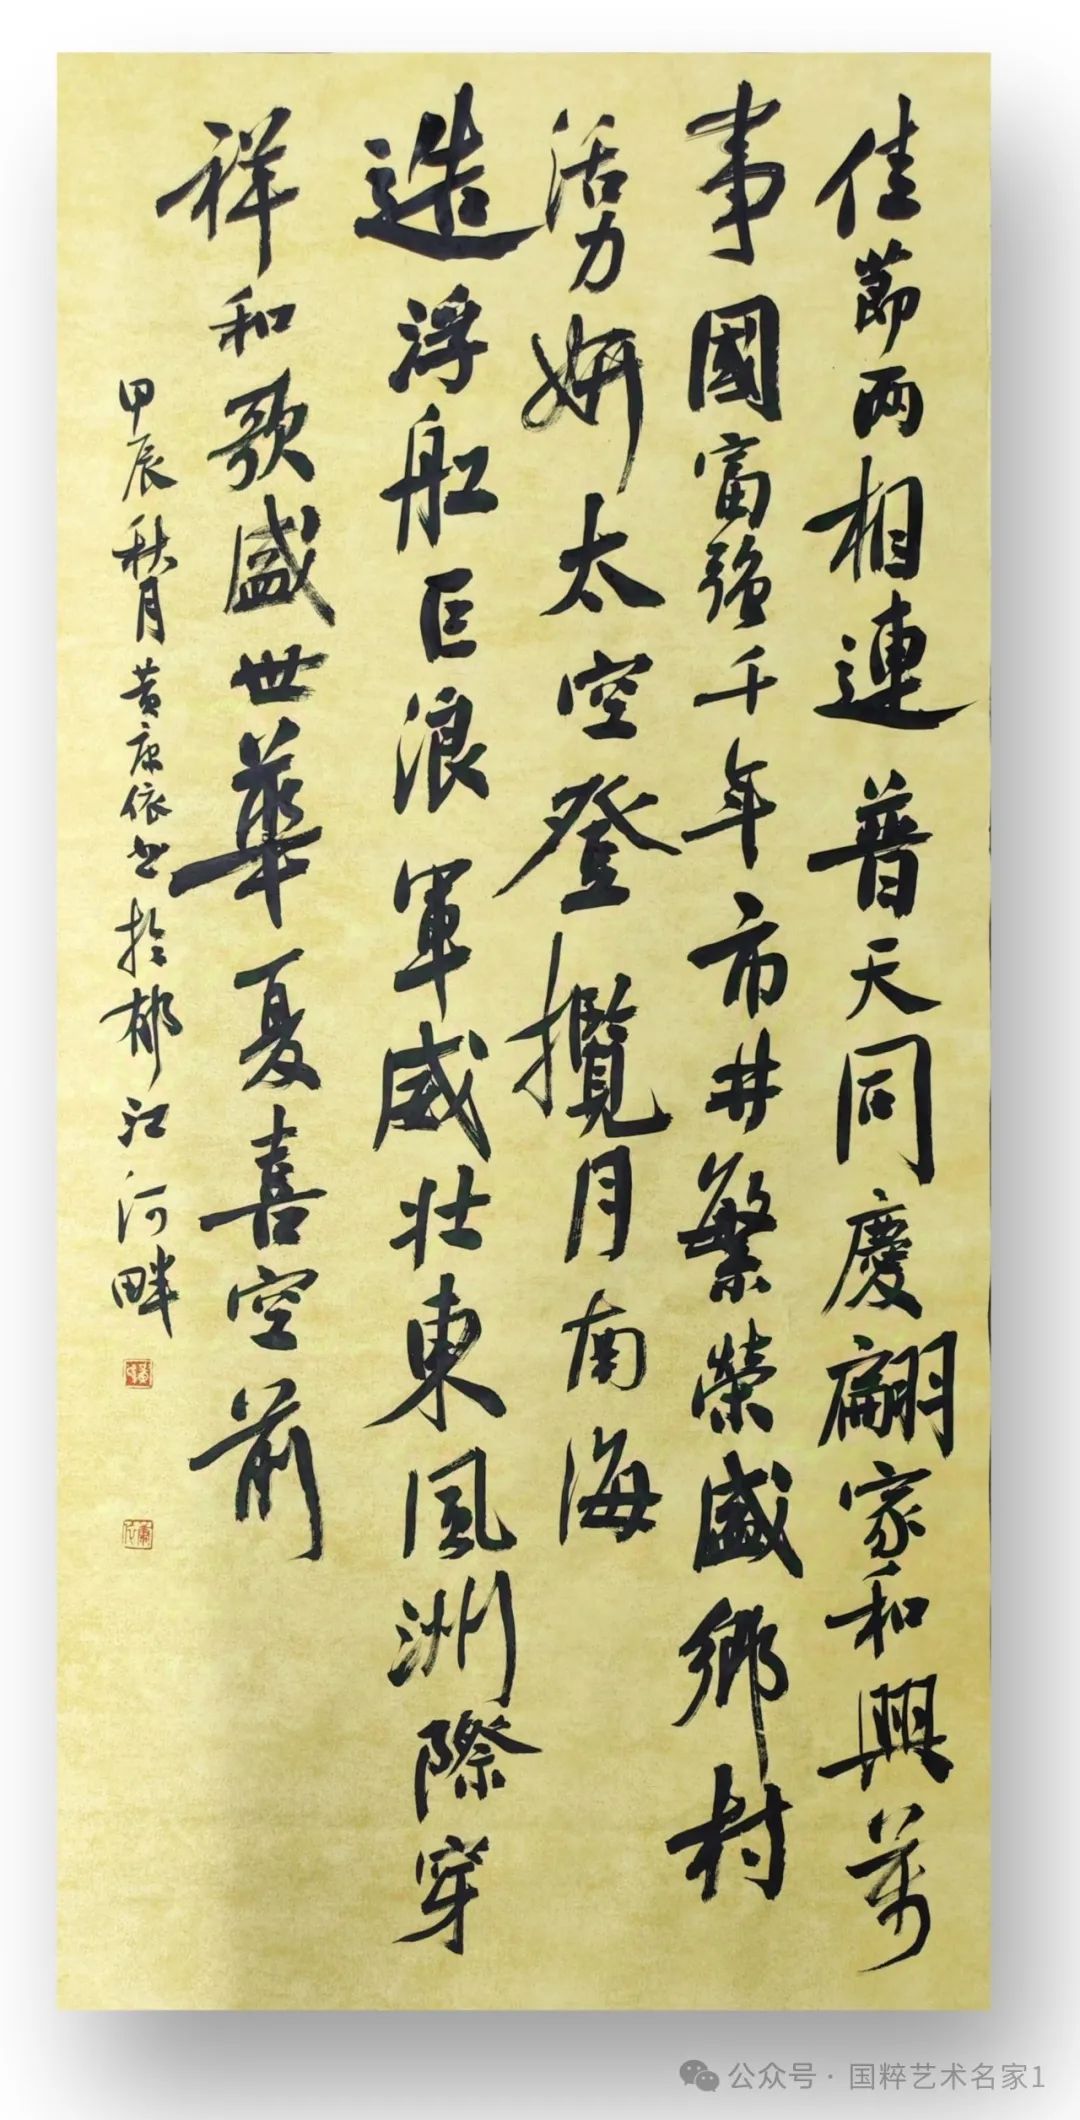 佳節两相連普天同慶翩家和興萬
事國富強千年市井繁榮盛鄉村
活力妍太空登攬月南海
造浮舡巨浪軍威壮東風洲際穿
祥和歌盛世華夏喜空前
甲辰秋月黄康依书於郁江河畔
公众号·国粹艺术名家1